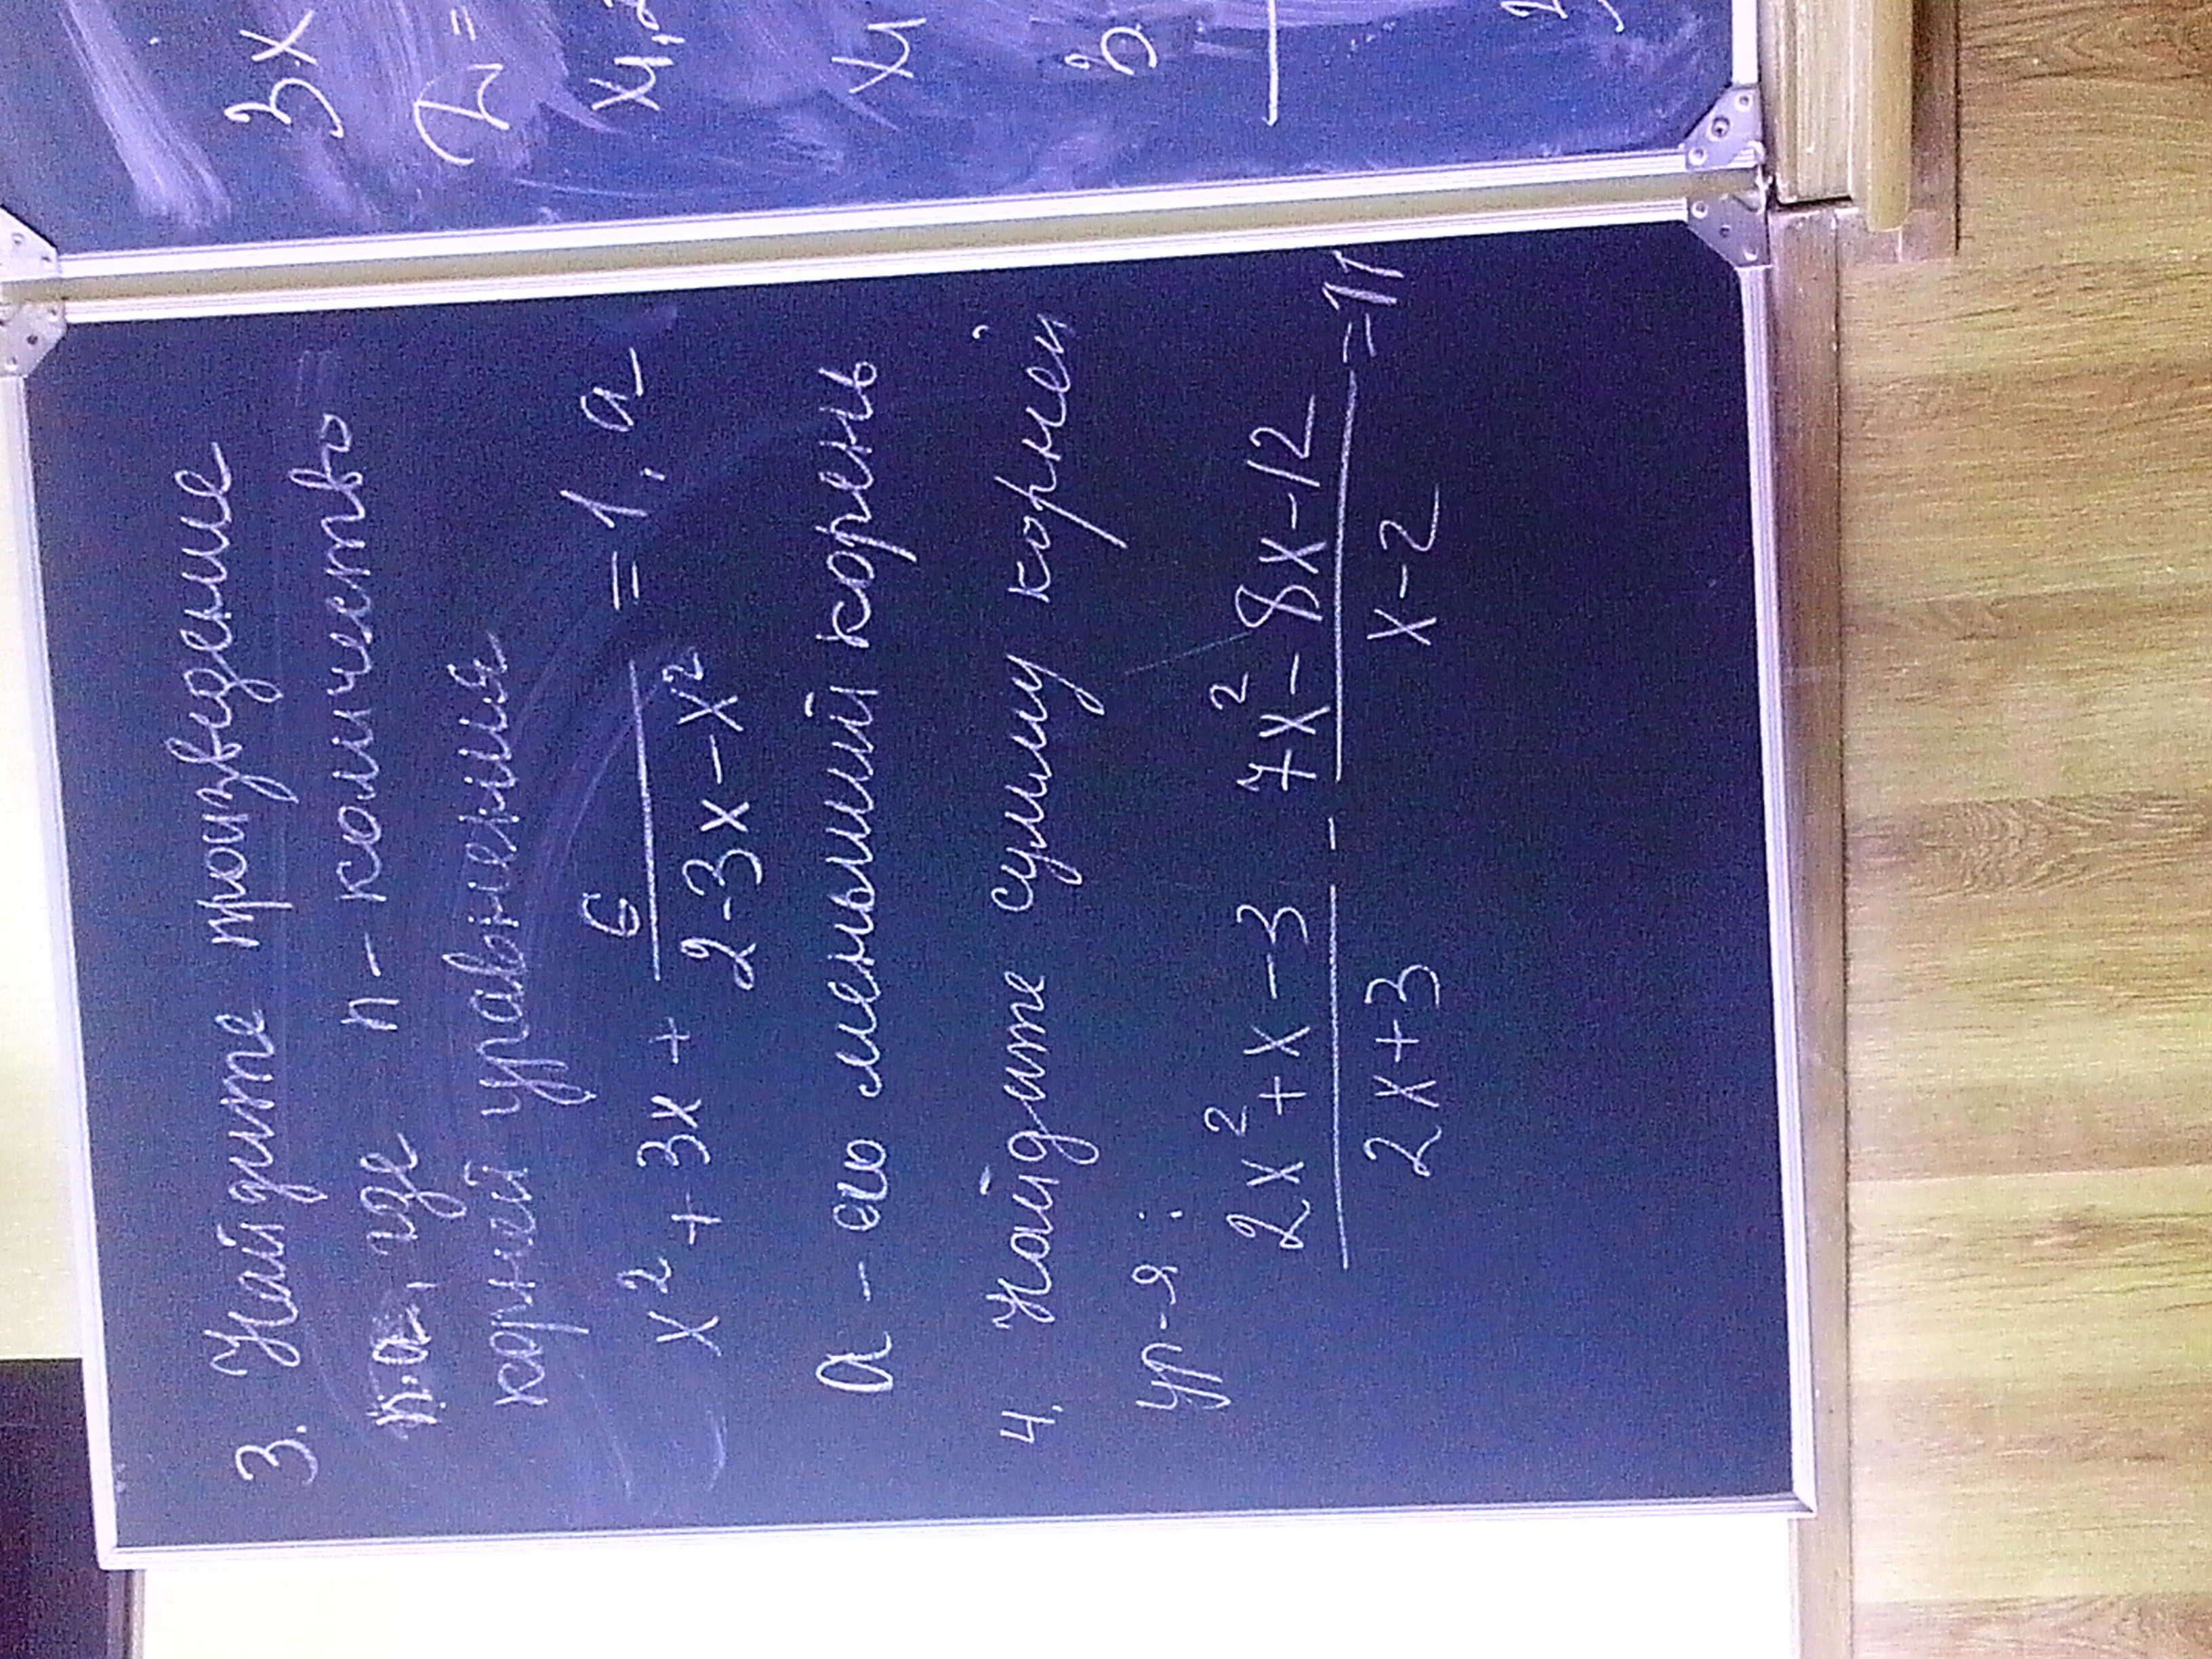 3. Найдите произведение
n·a, где n - количество
корней уравнения
x² + 3x + 6/(2-3x-x²) = 1, a
a - его меньший корень
4. Найдите сумму корней
ур-я:
(2x²+x-3)/(2x+3) - (7x²-8x-12)/(x-2) = 11
3x
x₁